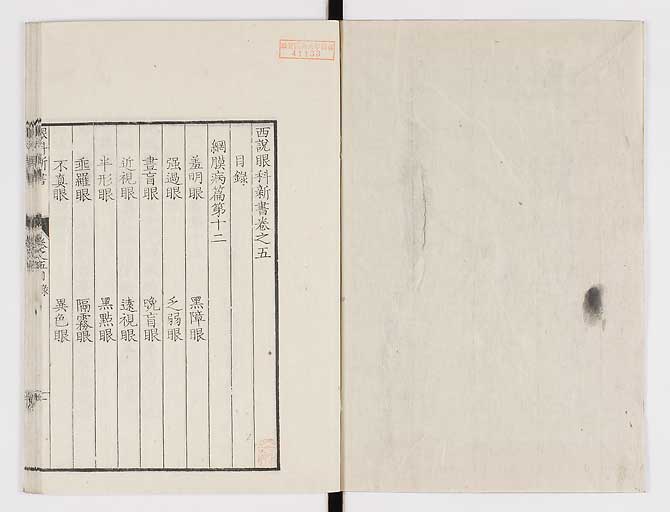 西說眼科新書卷之五
目錄
網膜病篇第十二
羞明眼 黑障眼
强過眼 乏弱眼
晝盲眼 晩盲眼
近視眼 遠視眼
半形眼 黑點眼
亜羅眼 隔霧眼
不真眼 異色眼
眼科新書 卷之五目錄
41133